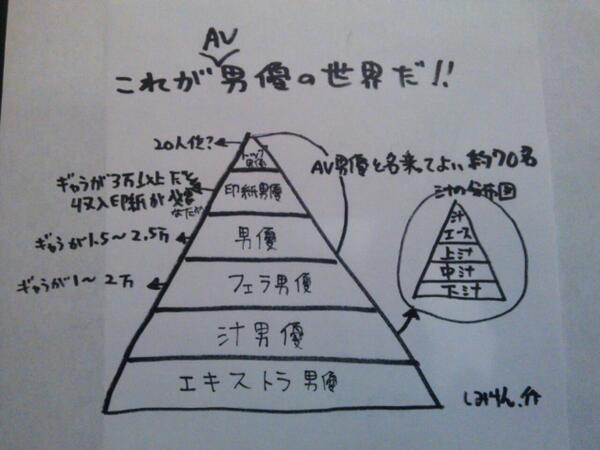 AV
これが男優の世界だ!!
20人位?
トップ男優
AV男優と名乗ってよい約70名
ギャラが3万以上だと
収入印紙が必要
なため
印紙男優
汁の分布図
汁
エース
上汁
中汁
下汁
ギャラが1.5〜2.5万
男優
ギャラが1〜2万
フェラ男優
汁男優
エキストラ男優
しみけん.作